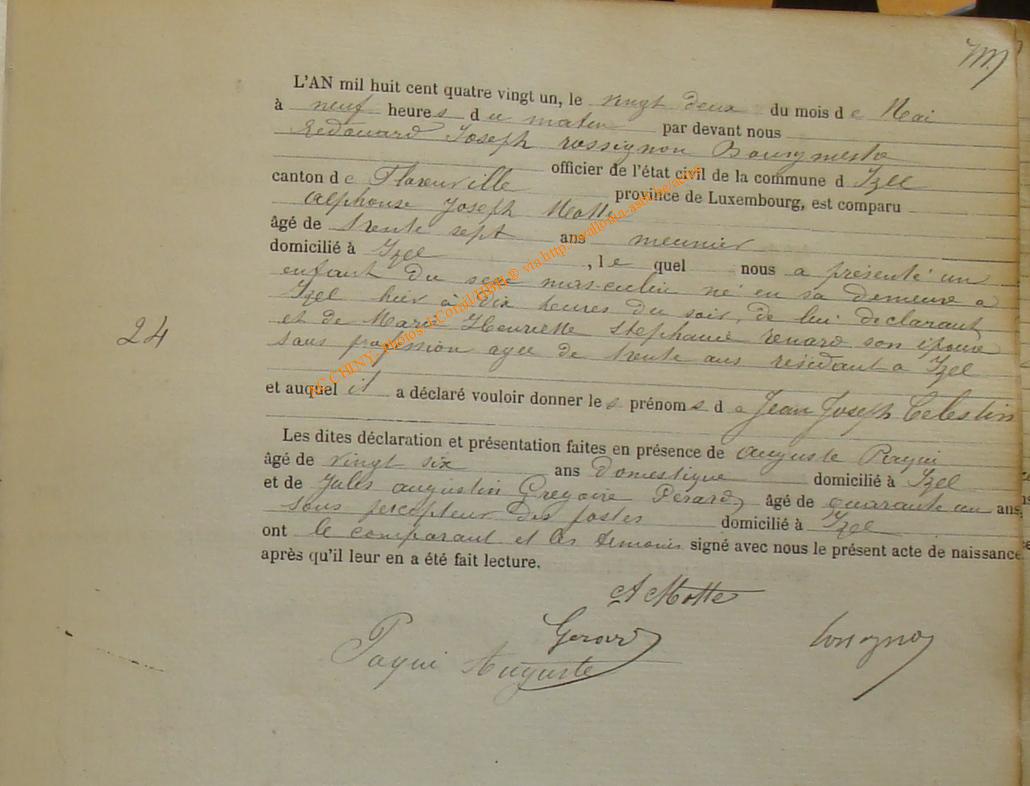 L'AN mil huit cent quatre vingt un, le vingt deux du mois de Mai
à neuf heures du matin par devant nous
Edouard Joseph rossignon Bourgmestre
officier de l'état civil de la commune d Izel
canton de Florenville province de Luxembourg, est comparu
Alphonse Joseph Motte
âgé de trente sept ans meunier
domicilié à Izel , le quel nous a présenté un
enfant du sexe masculin né en sa demeure a
Izel hier à dix heures du soir, de lui déclarant
et de Marie Henriette Stephanie renard son épouse
sans profession agee de trente ans résidant a Izel
24
et auquel il a déclaré vouloir donner les prénoms de Jean Joseph Celestin
Les dites déclaration et présentation faites en présence de auguste Paqui
âgé de vingt six ans Domestique domicilié à Izel
et de Jules augustin Gregoire âgé de quarante un ans,
sous percepteur des postes domicilié à Izel
ont le comparant et les temoins signé avec nous le présent acte de naissance
après qu'il leur en a été fait lecture.
A Motte
Paqui Auguste